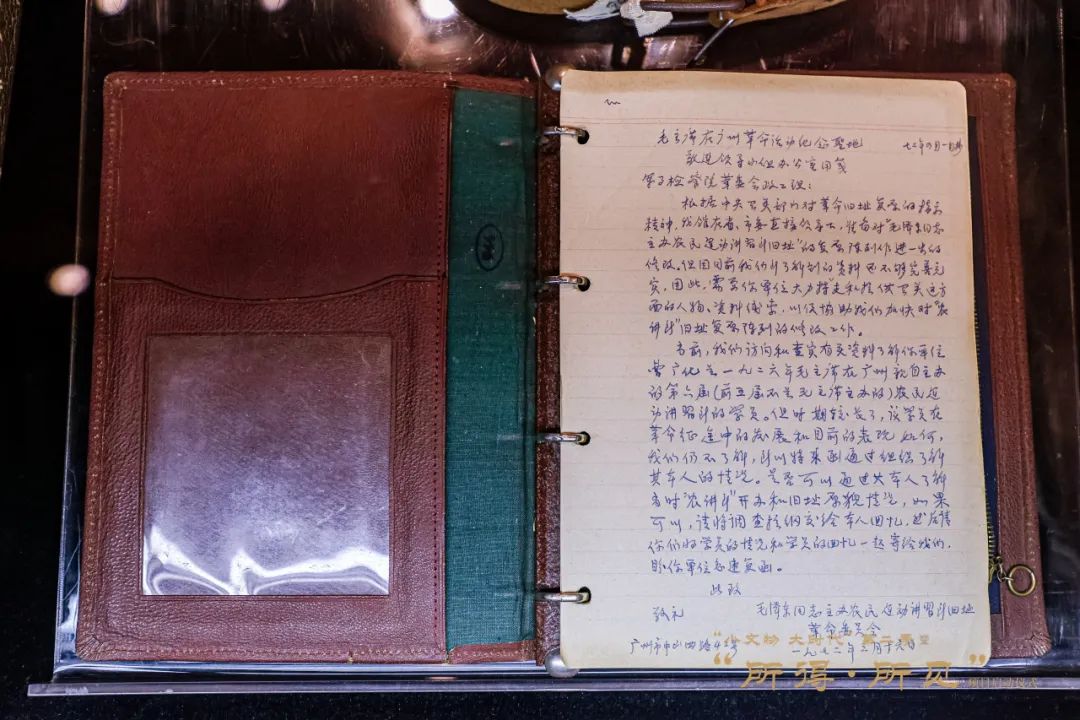 毛主席在广州革命活动纪念圣地
七二年四月一日
敬建领导小组办公室用笺
军子检学院革委会政工组:
根据中央有关部门对革命旧址复原的指示
精神,我馆在省、市委直接领导下,准备对"毛泽东同志
主办农民运动讲习所旧址"的复原陈列作进一步的
修改。但因目前我们所了解到的资料还不够完善充
实,因此,需要你单位大力支持和提供有关这方
面的人物、资料线索,以便协助我们加快对"农
讲所"旧址复原陈列的修改工作。
当前,我们访问和查实有关资料了解你单位
曾广化为一九二六年毛主席在广州亲自主办
的第六届(前五届不是毛主席主办的)农民运
动讲习所的学员。但时期较长了,该学员在
革命征途中的发展和目前的表现如何,
我们仍不了解,所以特来函通过组织了解
其本人的情况。是否可以通过其本人了解
当时"农讲所"开办和旧址原貌情况,如果
可以,请将调查提纲交给本人回忆,然后请
你们将学员的情况和学员的回忆一起寄给我们。
盼你单位急速复函。
此致
敬礼
毛泽东同志主办农民运动讲习所旧址
革命委员会
广州市中山四路42号
一九七二年三月十六日
"小文物 大时代"第二季
"所得·所见"
项目启动仪式